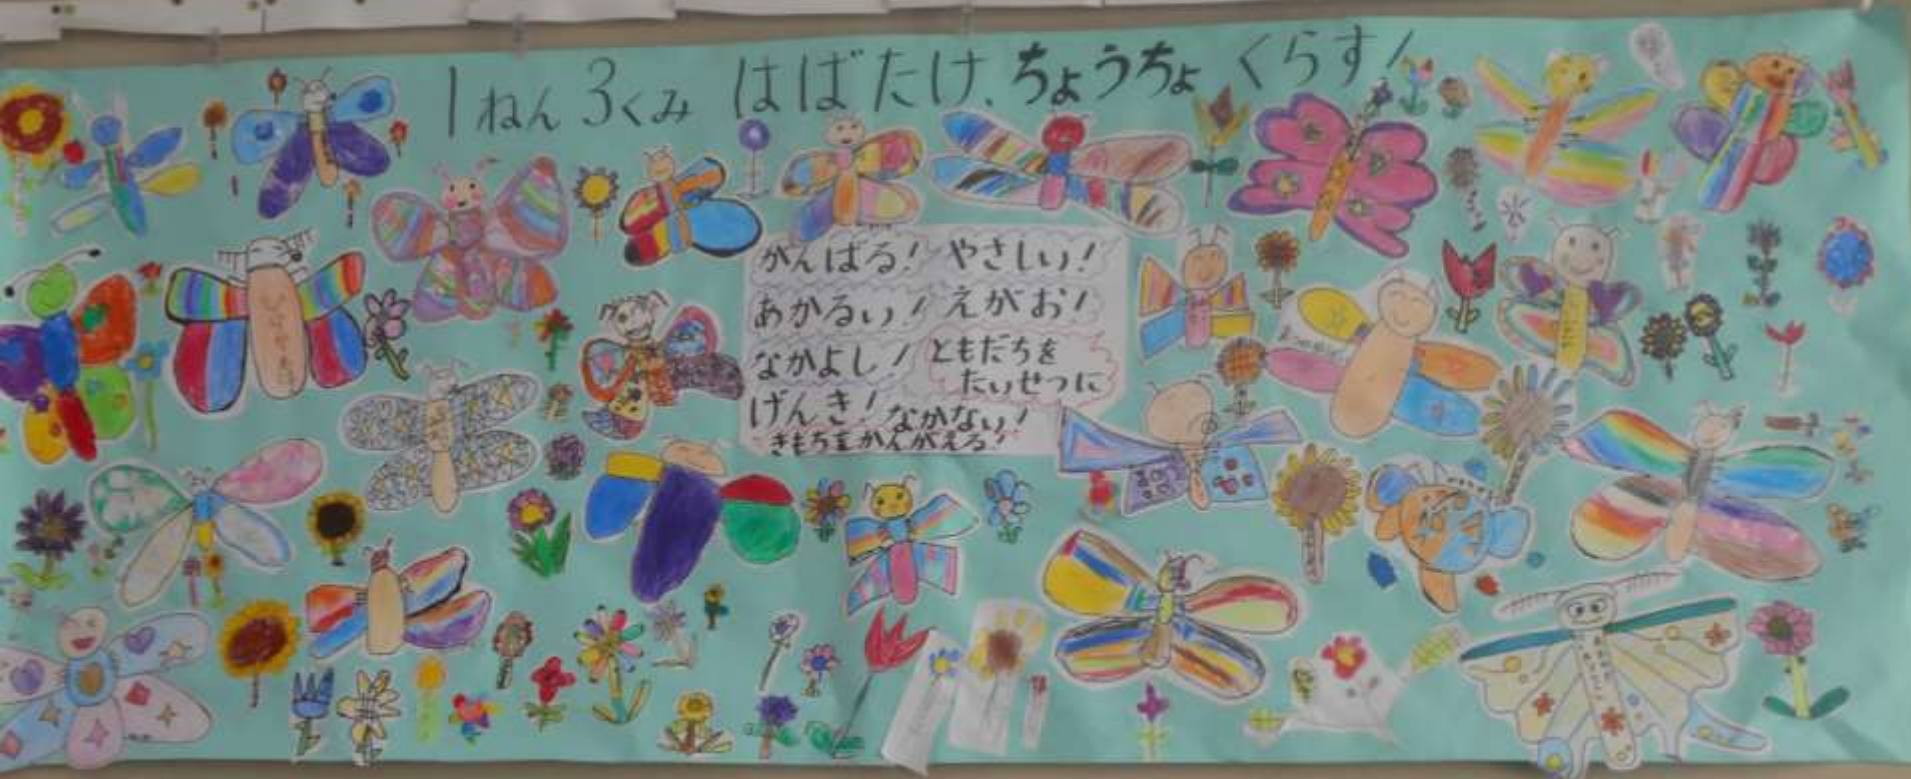 1ねん3くみ はばたけ、ちょうちょ くらす!
がんばる! やさしい!
あかるい! えがお!
なかよし! ともだちを
たいせつに
げんき! なかない!
きもちをかんがえる!